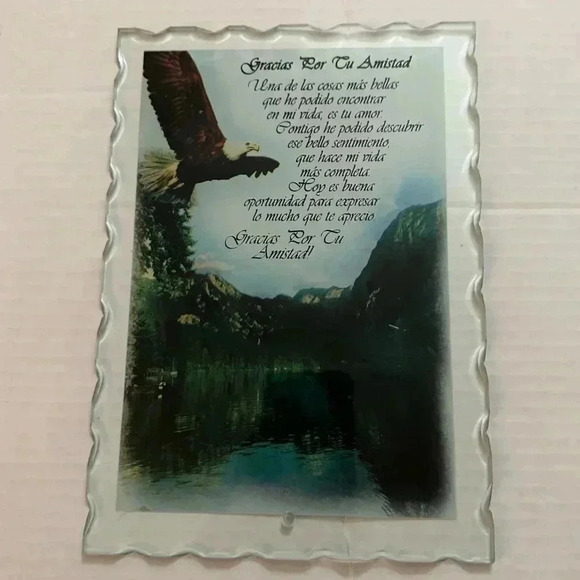 Gracias Por Tu Amistad
Una de las cosas más bellas
que he podido encontrar
en mi vida, es tu amor.
Contigo he podido descubrir
ese bello sentimiento,
que hace mi vida
más completa.
Hoy es buena
oportunidad para expresar
lo mucho que te aprecio
Gracias Por Tu
Amistad!